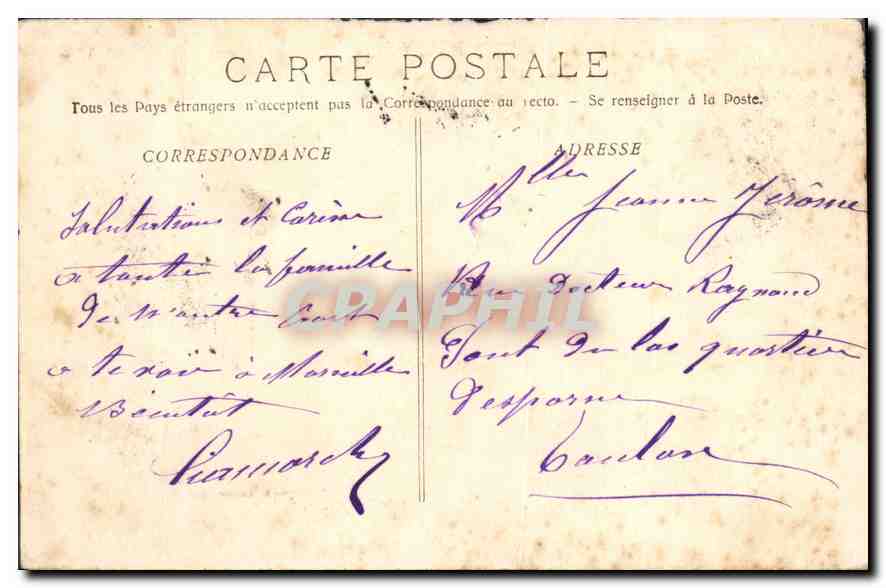 CARTE POSTALE
Tous les Pays étrangers n'acceptent pas la Correspondance au recto. - Se renseigner à la Poste.
CORRESPONDANCE
Salutations et
a toute la famille
de
a te voir à Marseille
Bientôt
ADRESSE
Mlle Jeanne Jérôme
Rue Docteur Raynaud
Pont du las quartier
Desparne
Toulon
CPAPHIL